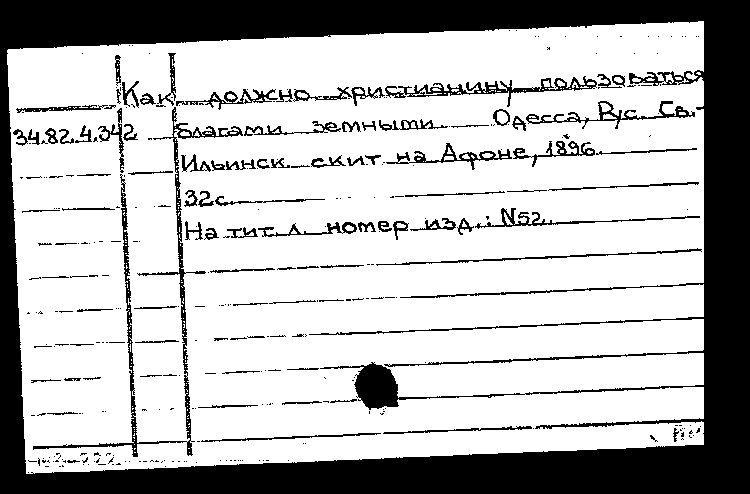 Как должно христианину пользоваться
34.82.4.342 благами земными. Одесса, Рус. Св.-
Ильинск. скит на Афоне, 1896.
32с.
На тит. л. номер изд.: N52.